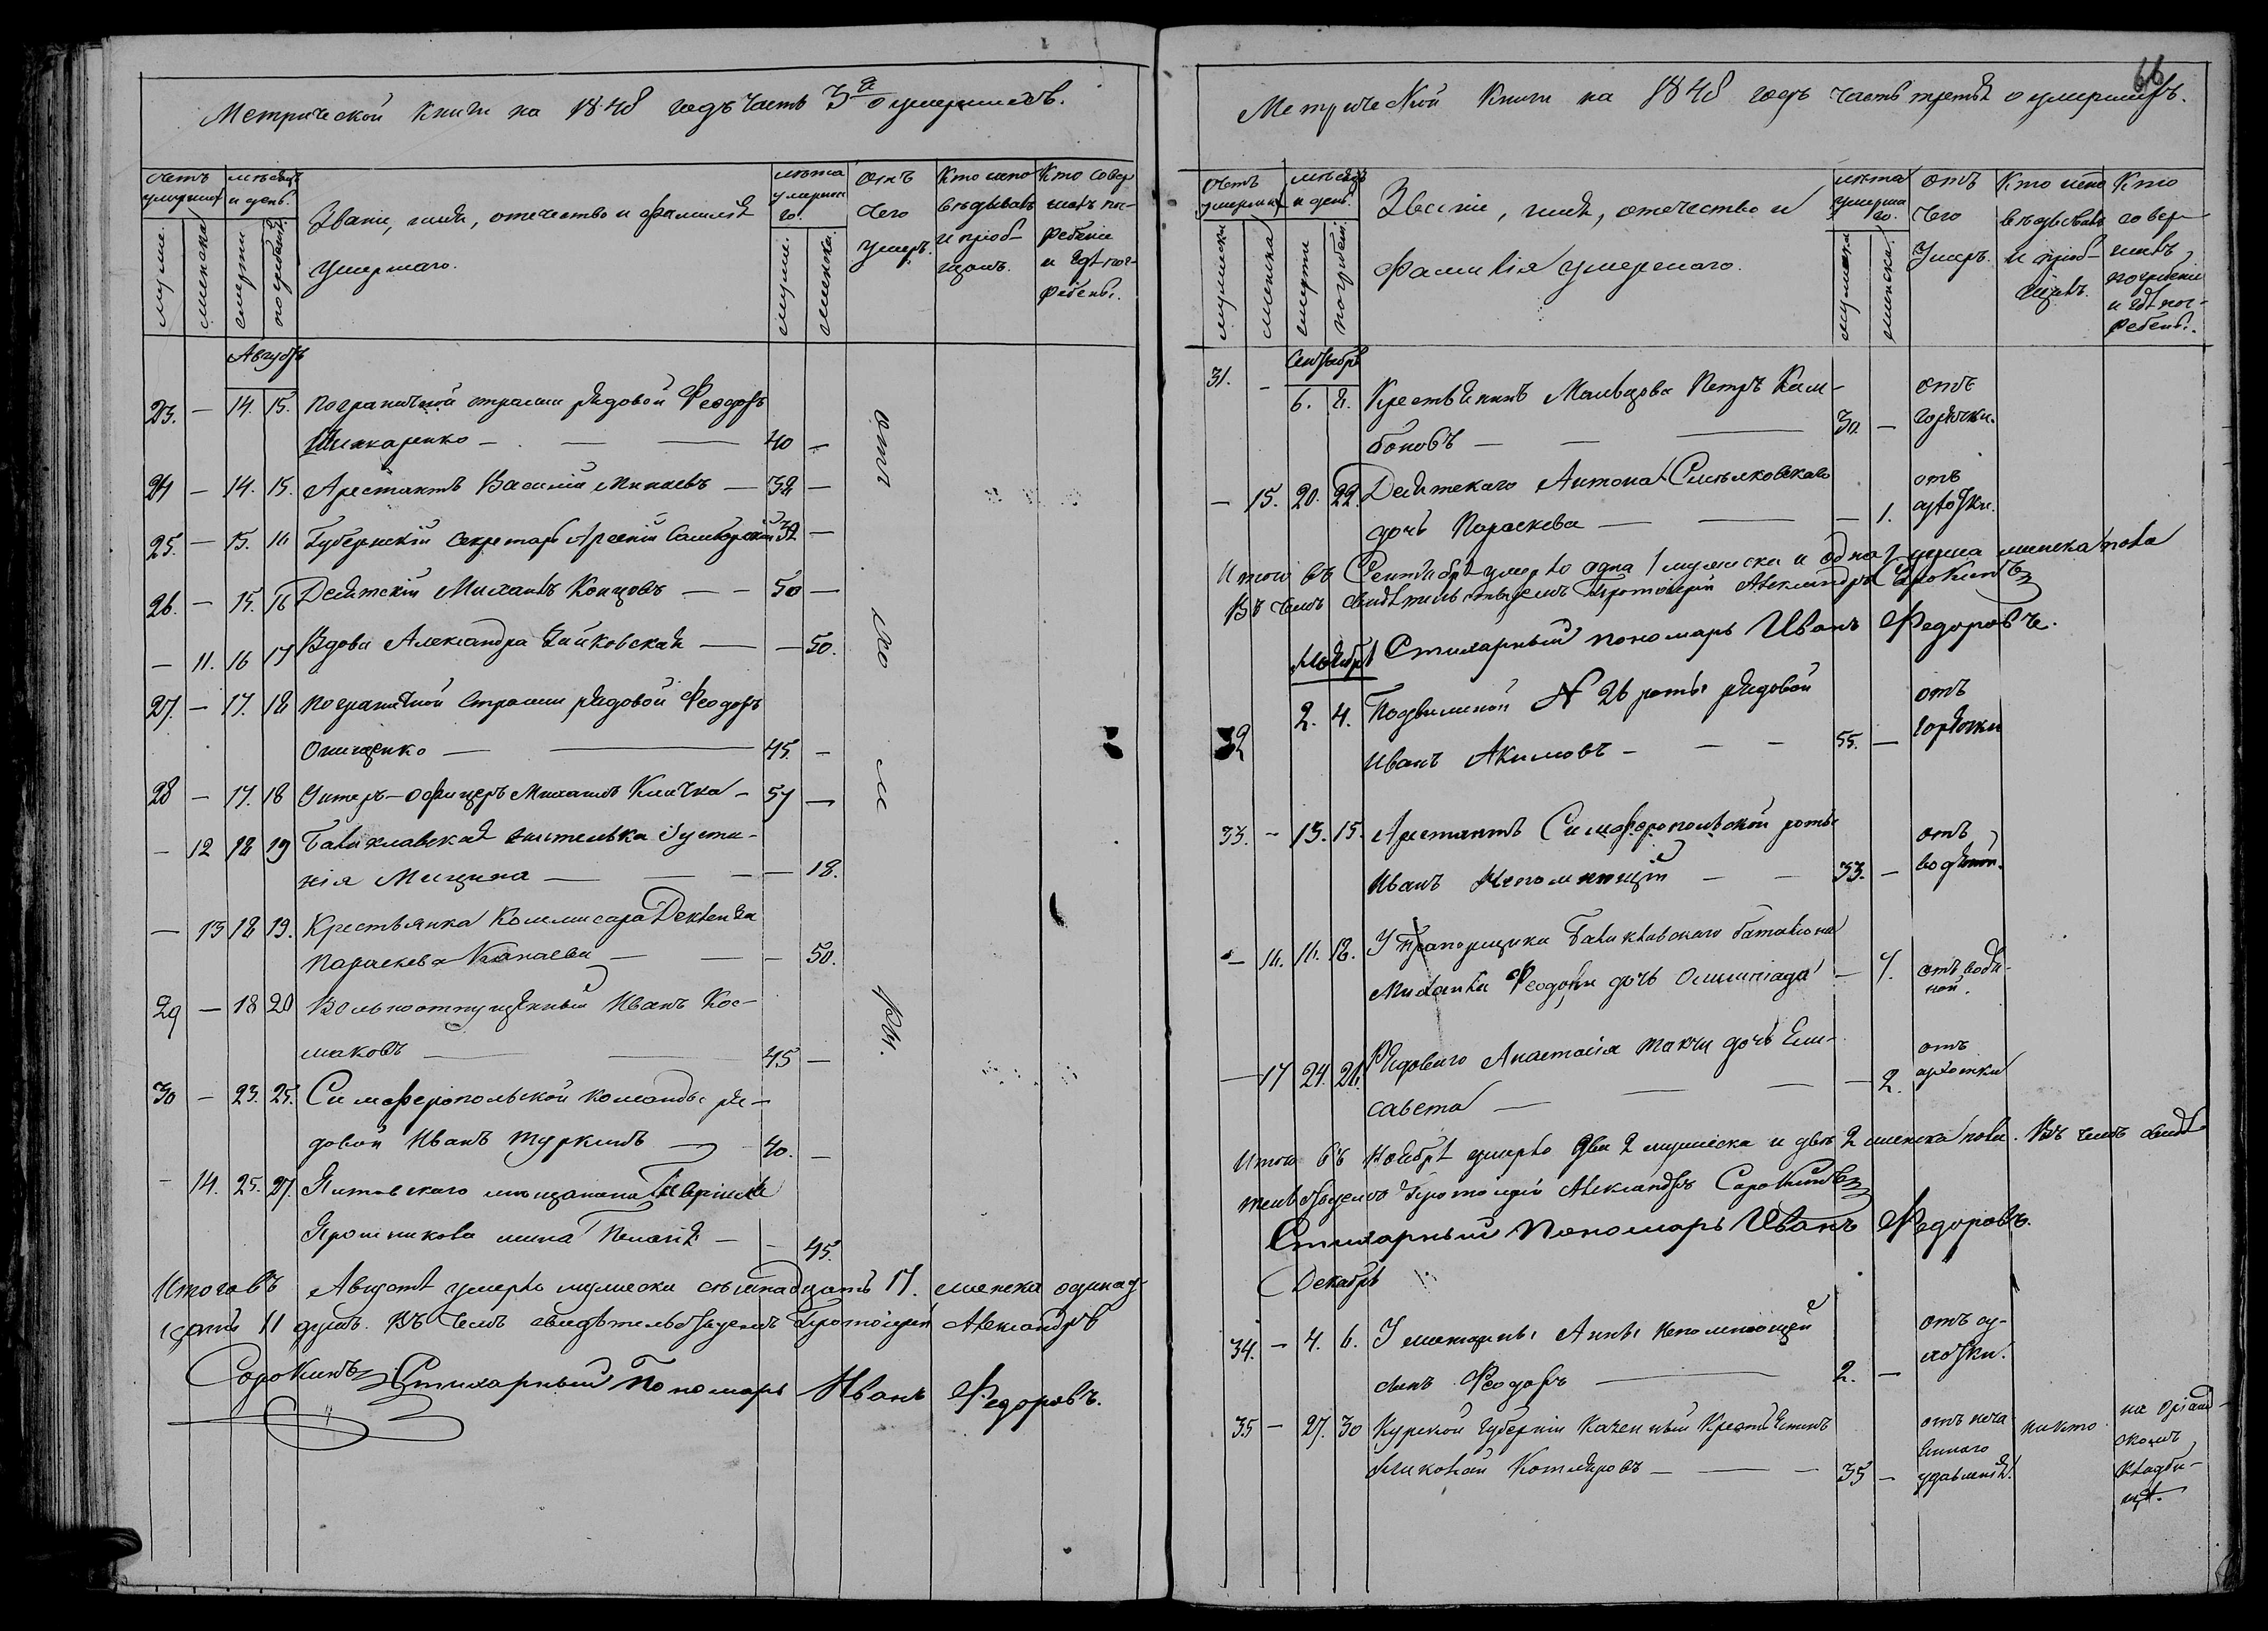 Метрической Книги на 1848 годъ часть 3я о умершихъ.
счетъ умершихъ
мѣсяцъ и день.
Званіе, имя, отечество и фамилія
умершаго.
лѣта умершаго.
отъ
чего
умеръ.
Кто испо-
вѣдывалъ
и пріоб-
щалъ.
Кто совер
шалъ по-
гребеніе
и гдѣ пог-
ребены.
мужес.
женска
смерти
погребен.
мужес.
женска.
Августъ
23. — 14. 15. пограничной стражи рядовой Феодоръ
Шинкаренко — — — 40 —
24 — 14. 15. Арестантъ Василій Минаевъ — 32 —
25. — 15. 16 Губернскій Секретарь Арсеній 32 —
26. — 15. 16 Деятскій Михаилъ Концовъ — — 50 —
— 11. 16 17 Вдова Александра — — 50.
27. — 17. 18 пограничной Стражи рядовой Феодоръ
Онищенко — — 45. —
28 — 17. 18 Унтеръ-офицеръ Михаилъ Кличка — 57 —
— 12 18 19 Балаклавская жителька Іусти-
нія Мицина — — — — 18.
— 13 18 19. Крестьянка Коммисара
Параскева Канаева — — — 50.
29 — 18 20 Вольноотпущенный Иванъ Кос-
маковъ — — 45 —
30 — 23. 25. Симферопольской команды ря-
довой Иванъ Туркинъ — 40. —
— 14. 25. 27. Ялтовскаго мещанина Гавріила
Прошникова жина Пелагія — — 45.
отъ
хо
ле
ры.
Итого въ Августѣ умерло мужески семнадцать 17. женска одинад-
цать 11 душъ. Въ чемъ свидѣтельствуемъ Протоіерей Александръ
Сорокинъ Стихарный Пономарь Иванъ Федоровъ.
66
Метрической Книги на 1848 годъ часть третья о умершихъ.
счетъ умершихъ
мѣсяцъ и день.
Званіе, имя, отечество и
фамилія умершаго.
лѣта умерша го.
отъ
чего
Умеръ.
Кто испо
вѣдывалъ
и пріоб-
щалъ.
Кто
совер-
шалъ
погребеніе
и гдѣ пог-
ребены.
мужески
женска
смерти
погребен.
мужеска
женска.
Сентябрь
31. — 6. 8. Крестьянинъ Мальцова Петръ Кам-
боновъ — — — 30 — отъ
горячки.
— 15. 20. 22. Деятскаго Антона
дочь Параскева — — — 1. отъ
Итого въ Сентябрѣ умерло одна 1 мужески и одна 1 душа женска пола
Въ чемъ свидѣтельствуемъ Протоіерей Александръ Сорокинъ
Стихарный пономарь Иванъ Федоровъ.
Ноябрь
32 2. 4. Подвижной № 26 роты рядовой
Иванъ Акимовъ — — — 55. — отъ
горячки
33. — 13. 15. Арестантъ Симферопольской роты
Иванъ Непомнящій — — 33. — отъ
водяной.
— 16. 16. 18. У Прапорщика Балаклавского баталіона
Михаила Феодори дочь Олимпіада — 7. отъ водя-
ной.
— 17 24. 26. Рядового Анастасія Такчи дочь Ели-
савета — — — — 2. отъ
Итого въ Ноябрѣ умерло два 2 мужеска и двѣ 2 женска пола. Въ чемъ свидѣ
тельствуемъ Протоіерей Александръ Сорокинъ
Стихарный Пономарь Иванъ Федоровъ.
Декабрь
34. — 4. 6. У Анны непомнющей
сынъ Феодоръ — 2. —
35 — 27. 30 Курской Губерніи Казенный Крестьянинъ
Николай Котляровъ — — — 35 — отъ неча
яннаго
удавленія.
никто
на
скомъ
кладби-
щѣ.